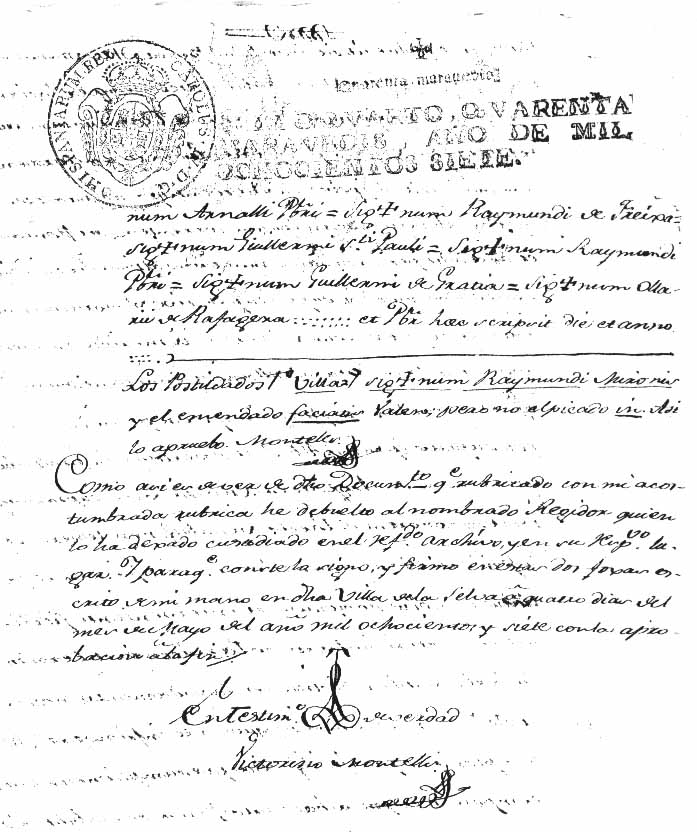 Quarenta maravedis
SELLO QVARTO, QVARENTA
MARAVEDIS, AÑO DE MIL
OCHOCIENTOS SIETE.
HISPANIARUM REX CAROLUS IV D. G.
num Arnalli Pbri = Sig+num Raymundi de Freixa=
sig+num Guillermi Sti Pauli = Sig+num Raymundi
Pbri = Sig+num Guillermi de Gratia = Sig+num Olla=
rii de Rafagera ........ et Pbr haec scripsit die et anno
.....
Los Postildados Villa sig+num Raymundi Mironis
y el emendado faciatis Valen; pero no el picado in. Asi
lo apruebo. Montells
Como avien de ver de dho Documto qe rubricado con mi acos=
tumbrada rubrica he debuelto al nombrado Regidor quien
lo ha dexado custodiado en el refdo Archivo, y en su
gar. Y paraqe conste la signo, y firmo en estas dos foxas es=
crito de mi mano en dha Villa de la Selva a quatro dias del
mes de Mayo del año mil ochocientos y siete con la apro=
bacion a la fin
En testimo de verdad
Victorino Montells